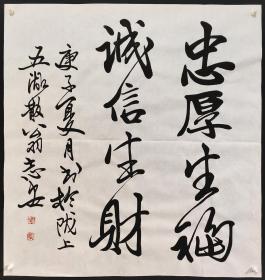 忠厚生福
诚信生财
庚子夏月书于陇上
五湖散翁志安